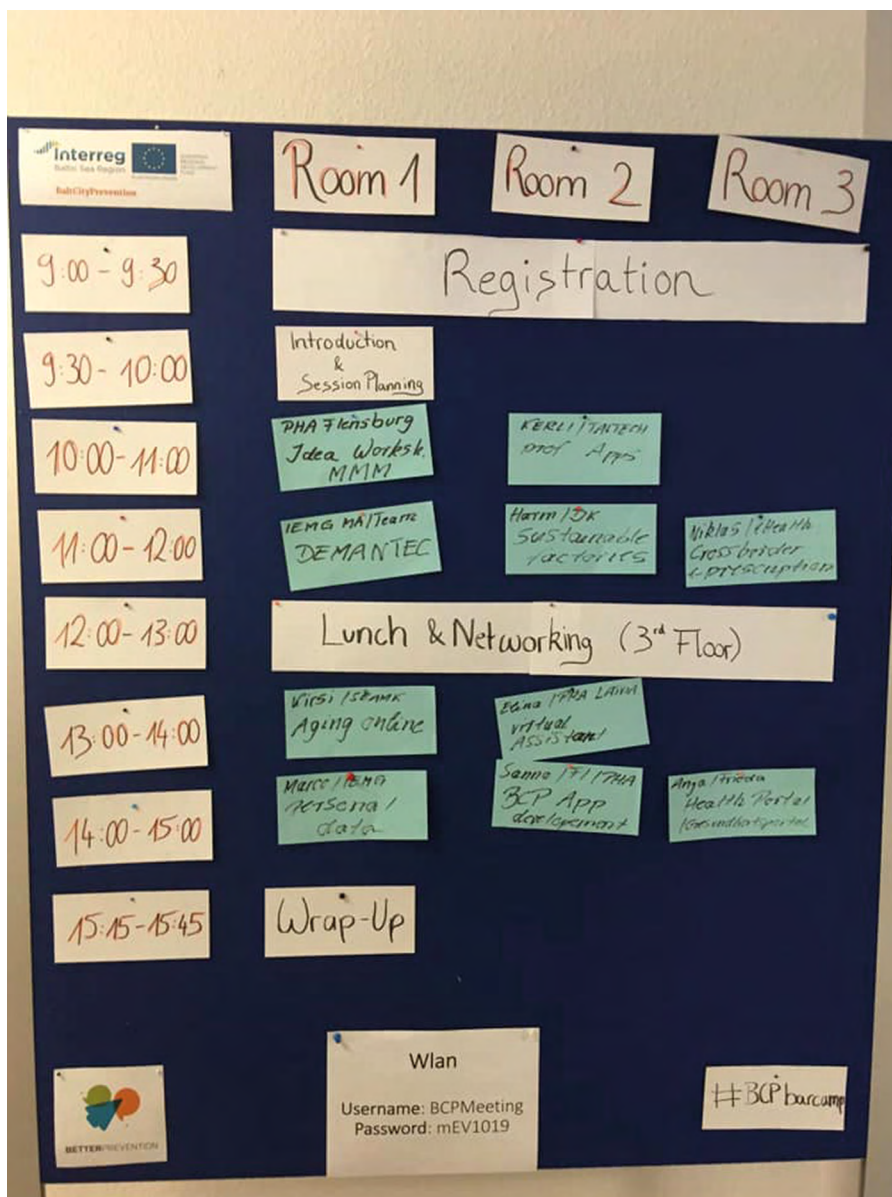 interreg
Baltic Sea Region
EUROPEAN
REGIONAL
DEVELOPMENT
FUND
BaltCityPrevention
Room 1
Room 2
Room 3
9:00 - 9:30
Registration
9:30 - 10:00
Introduction
&
Session Planning
10:00 - 11:00
PHA Flensburg
Idea Worksh.
MMM
KERLI/TALTECH
Apps
11:00 - 12:00
IEMG MA/Team
DEMANTEC
Harm/DK
Sustainable
factories
Niklas/eHealth
Crossborder
e-prescription
12:00 - 13:00
Lunch & Networking (3rd Floor)
13:00 - 14:00
Virsi/SEAMK
Aging online
Elina/
virtual
ASSISTANT
14:00 - 15:00
Marco/IEMG
personal
data
Sanna/FI/PHA
BCP App
developement
Anja/Frieda
Health Portal
/Gesundheitsportal
15:15 - 15:45
Wrap-Up
Wlan
Username: BCPMeeting
Password: mEV1019
BETTERPREVENTION
#BCPbarcamp